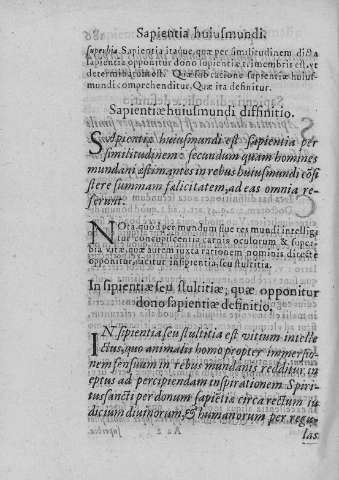 Sapientia huiusmundi.
superbia Sapientia itaque, quæ per similitudinem dicta
sapientia opponitur dono sapientiæ, trimembris est, vt
determinatum est. Quæ sub ratione sapientiæ huius-
mundi comprehenditur. Quæ ita definitur.
Sapientiæ huius mundi diffinitio.
SApientiæ huiusmundi est sapientia per
similitudinem: secundum quam homines
mundani estimantes in rebus huiusmundi cõsi
stere summam fælicitatem, ad eas omnia re-
ferunt.
NOta quòd per mundum siue res mundi intelligi-
tur concupiscentia carnis oculorum & super-
bia vitæ, quæ autem iuxta rationem nominis directe
opponitur, dicitur insipientia seu stultitia.
Insipientiæ seu stultitiæ, quæ opponitur
dono sapientiæ definitio.
INsipientia seu stultitia est vitium intelle
ctus, quo animalis homo propter immersio-
nem sensuum in rebus mundanis redditur in
eptus ad percipiendam inspirationem Spiri-
tus sancti per donum sapiẽtiæ circa rectum iu
dicium diuinorum, & humanorum per regu-
las